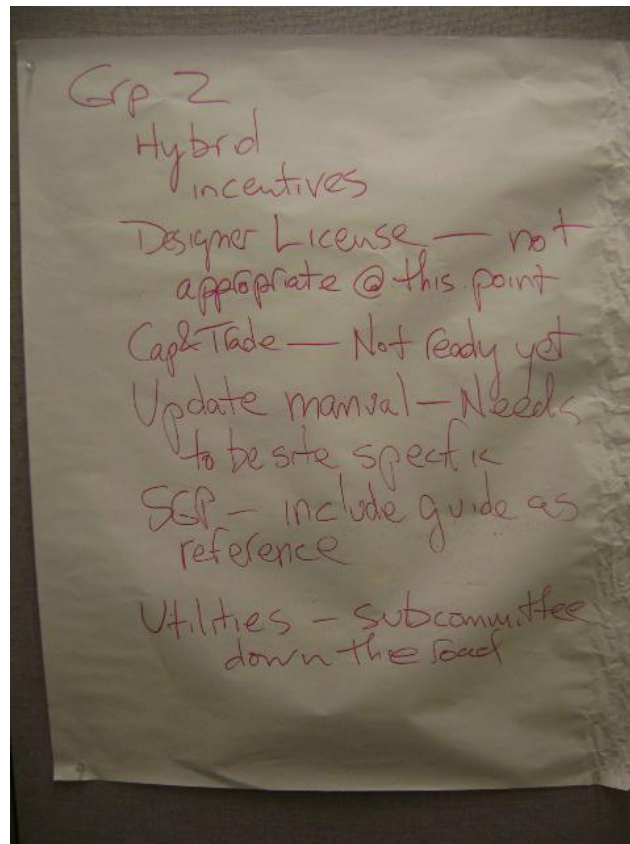 Grp 2
Hybrid
incentives
Designer License — not
appropriate @ this point
Cap& Trade — Not ready yet
Update manual — Needs
to be site specific
SGP — include guide as
reference
Utilities — subcommittee
down the road